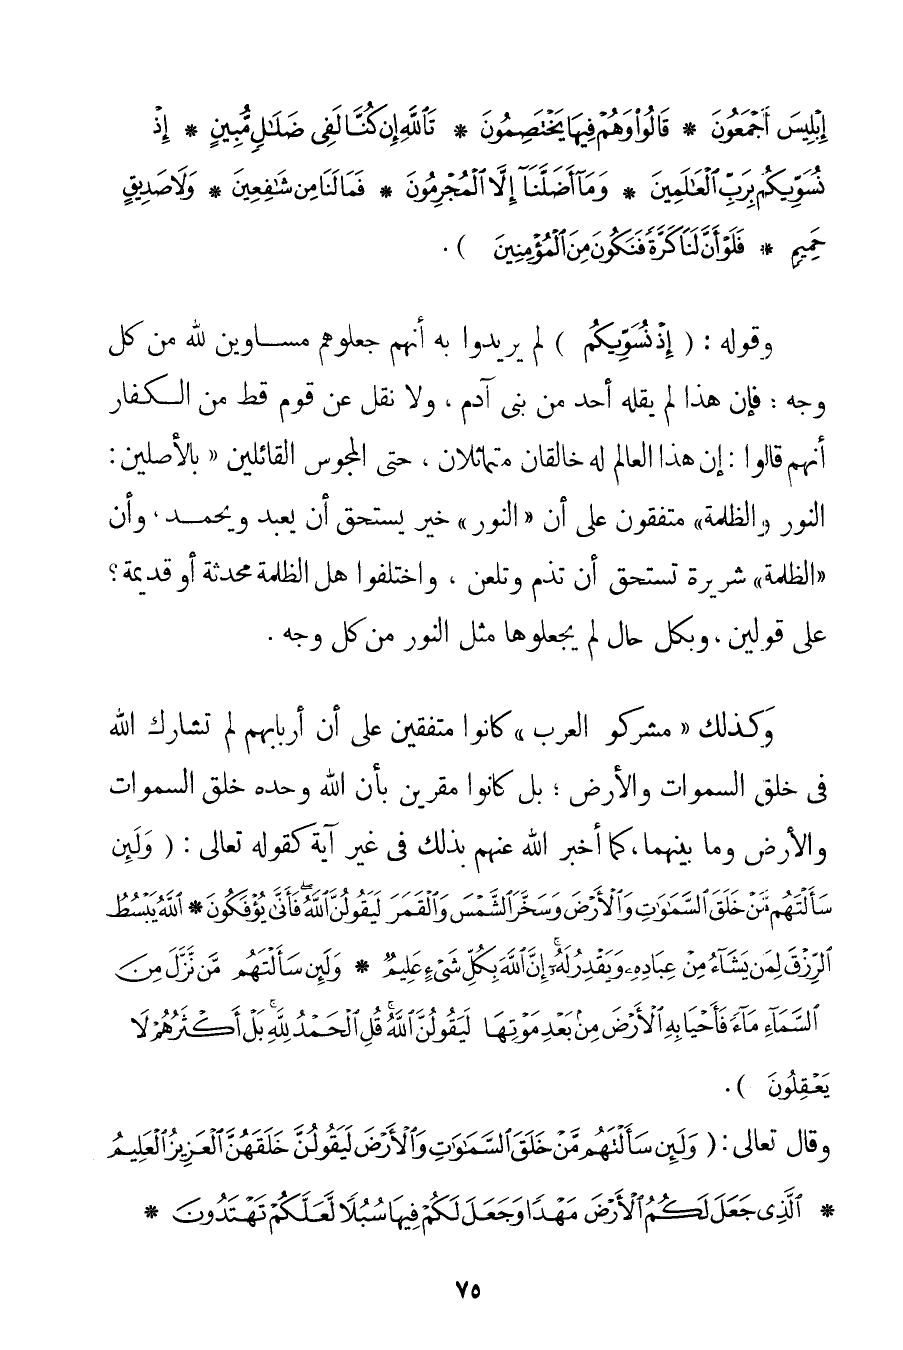 إِبْلِيسَ أَجْمَعُونَ * قَالُوا۟ وَهُمْ فِيهَا يَخْتَصِمُونَ * تَٱللَّهِ إِن كُنَّا لَفِى ضَلَٰلٍ مُّبِينٍ * إِذْ
نُسَوِّيكُم بِرَبِّ ٱلْعَٰلَمِينَ * وَمَآ أَضَلَّنَآ إِلَّا ٱلْمُجْرِمُونَ * فَمَا لَنَا مِن شَٰفِعِينَ * وَلَا صَدِيقٍ
حَمِيمٍ * فَلَوْ أَنَّ لَنَا كَرَّةً فَنَكُونَ مِنَ ٱلْمُؤْمِنِينَ ) .
وقوله : ( إِذْ نُسَوِّيكُم ) لم يريدوا به أنهم جعلوهم مساوين لله من كل
وجه : فإن هذا لم يقله أحد من بنى آدم ، ولا نقل عن قوم قط من الكفار
أنهم قالوا : إن هذا العالم له خالقان متماثلان ، حتى المجوس القائلين « بالأصلين :
النور والظلمة» متفقون على أن « النور » خير يستحق أن يعبد ويحمد ، وأن
«الظلمة» شريرة تستحق أن تذم وتلعن ، واختلفوا هل الظلمة محدثة أو قديمة ؟
على قولين ، وبكل حال لم يجعلوها مثل النور من كل وجه .
وكذلك « مشركو العرب » كانوا متفقين على أن أربابهم لم تشارك الله
فى خلق السموات والأرض ؛ بل كانوا مقرين بأن الله وحده خلق السموات
والأرض وما بينهما ، كما أخبر الله عنهم بذلك فى غير آية كقوله تعالى : ( وَلَئِن
سَأَلْتَهُم مَّنْ خَلَقَ ٱلسَّمَٰوَٰتِ وَٱلْأَرْضَ وَسَخَّرَ ٱلشَّمْسَ وَٱلْقَمَرَ لَيَقُولُنَّ ٱللَّهُ ۖ فَأَنَّىٰ يُؤْفَكُونَ * ٱللَّهُ يَبْسُطُ
ٱلرِّزْقَ لِمَن يَشَآءُ مِنْ عِبَادِهِۦ وَيَقْدِرُ لَهُۥٓ ۚ إِنَّ ٱللَّهَ بِكُلِّ شَىْءٍ عَلِيمٌ * وَلَئِن سَأَلْتَهُم مَّن نَّزَّلَ مِنَ
ٱلسَّمَآءِ مَآءً فَأَحْيَا بِهِ ٱلْأَرْضَ مِنۢ بَعْدِ مَوْتِهَا لَيَقُولُنَّ ٱللَّهُ ۚ قُلِ ٱلْحَمْدُ لِلَّهِ ۚ بَلْ أَكْثَرُهُمْ لَا
يَعْقِلُونَ ) .
وقال تعالى : ( وَلَئِن سَأَلْتَهُم مَّنْ خَلَقَ ٱلسَّمَٰوَٰتِ وَٱلْأَرْضَ لَيَقُولُنَّ خَلَقَهُنَّ ٱلْعَزِيزُ ٱلْعَلِيمُ
* ٱلَّذِى جَعَلَ لَكُمُ ٱلْأَرْضَ مَهْدًا وَجَعَلَ لَكُمْ فِيهَا سُبُلًا لَّعَلَّكُمْ تَهْتَدُونَ *
٧٥